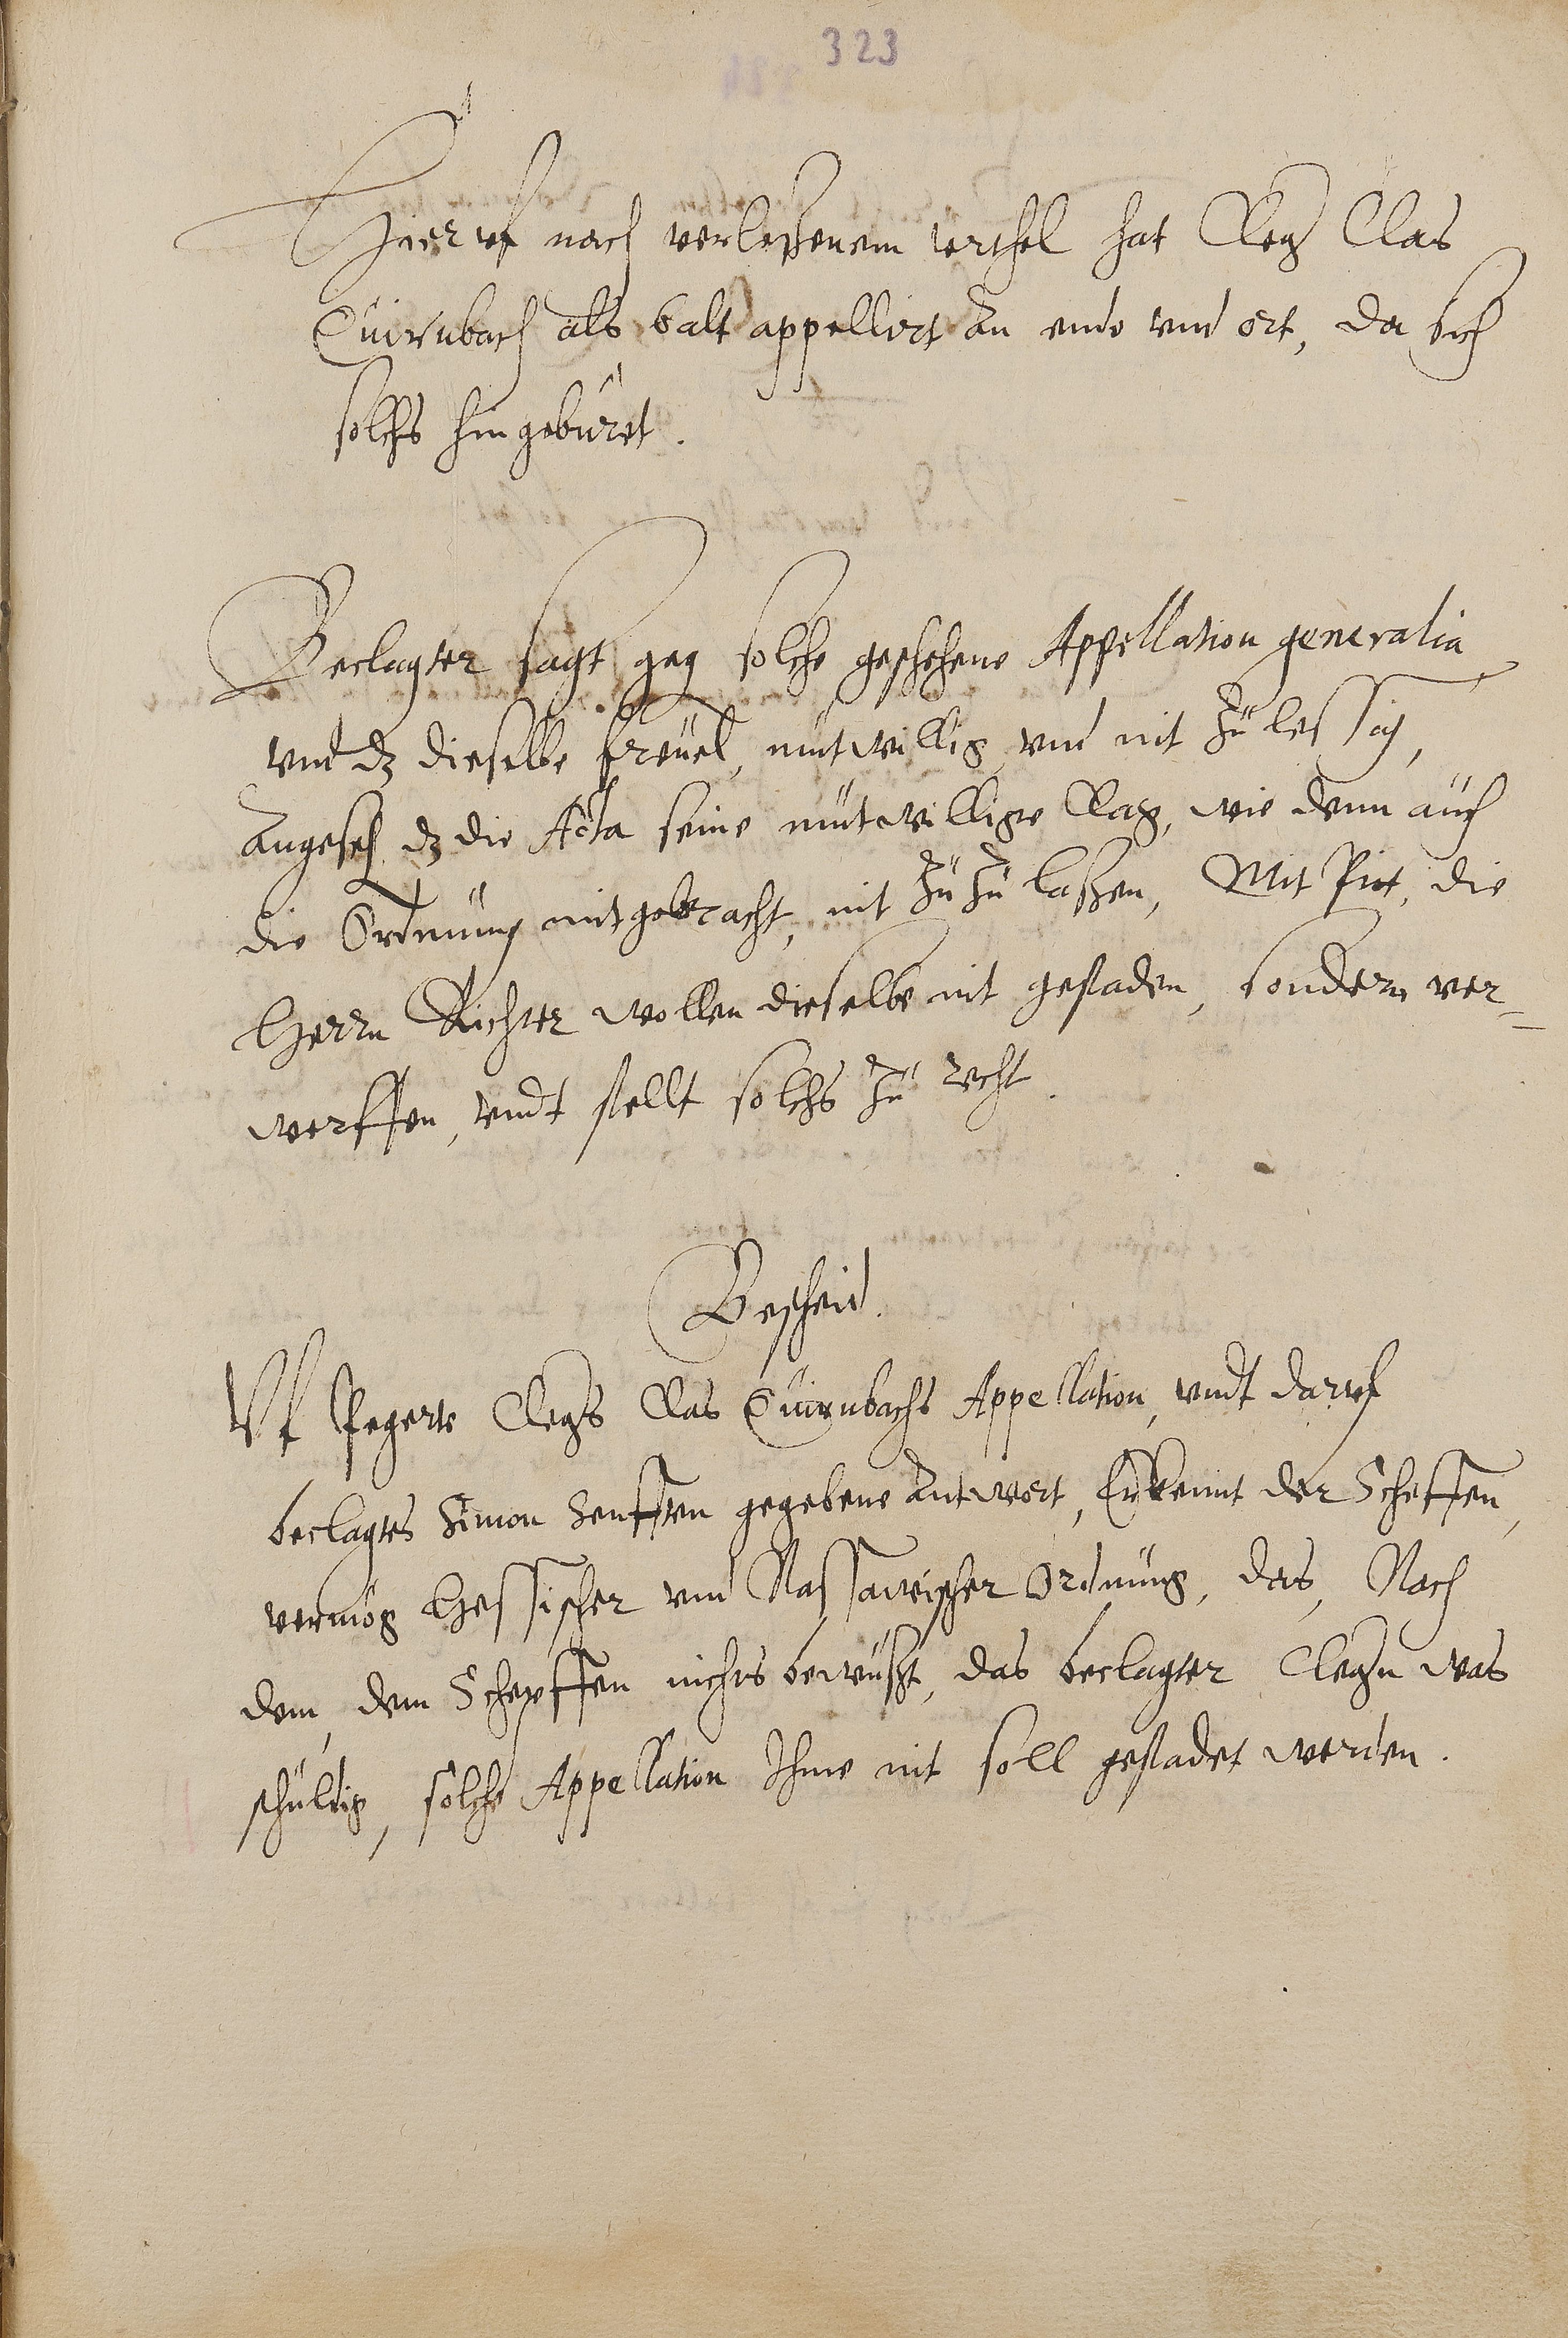 323
Hieruf nach verleßenem urthel hat Cleg Clas
Quirnbach als balt appellirt an ende vnd ort, da sich
solchs hin gebüret.
Beclagter sagt geg solche geschehene Appellation generalia
vnd dz dieselbe freuel, mutwillig vnd nit zu lessig,
angeseh dz die Acta seine mutwillige Clag, wie dann auch
die Ordnung mitgebracht, nit zu zu laßen, Mit Pitt, die
Herrn Richter wollen dieselbe nit gestaden, sondern ver=
werffen, vndt stellt solchs zu recht.
Bescheid.
Vf Clegs Clas Quirnbachs Appellation, vndt daruf
beclagtes Simon Senfften gegebene Antwort, Erkennt der Scheffen,
vermög Hessischer vnd Nassawischer Ordnung, das, Nach
dem, dem Scheffen nichts bewußt, das beclagter Clegern was
schuldig, solche Appellation Ihme nit soll gestadet werden.